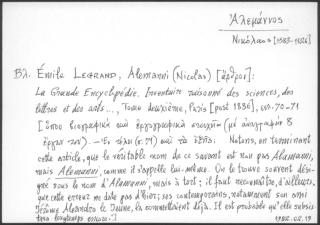 Ἀλεμάννος
Νικόλαος [1583-1626]
Βλ. Émile LEGRAND, Alemanni (Nicolas) [ἄρθρον]:
La Grande Encyclopédie. Inventaire raisonné des sciences, des
lettres et des arts..., Tome deuxième, Paris [post 1886], σσ. 70-71
[ὅπου βιογραφικὰ καὶ ἐργογραφικὰ στοιχεῖα (μὲ ἀναγραφὴ 8
ἔργων του). — Ἐν τέλει (σ. 71) καὶ τὰ ἑξῆς: Notons, en terminant
cette article, que le véritable nom de ce savant est non pas Alamanni,
mais Alemanni, comme il s'appelle lui-même. On le trouve souvent dési-
gné sous le nom d'Alamanni, mais à tort; il faut reconnaître, d'ailleurs,
que cette erreur ne date pas d'hier; ses contemporains, notamment son ami
Jérôme Aleandro le Jeune, la commettaient déjà. Il est probable qu'elle subsis
tera longtemps encore.]